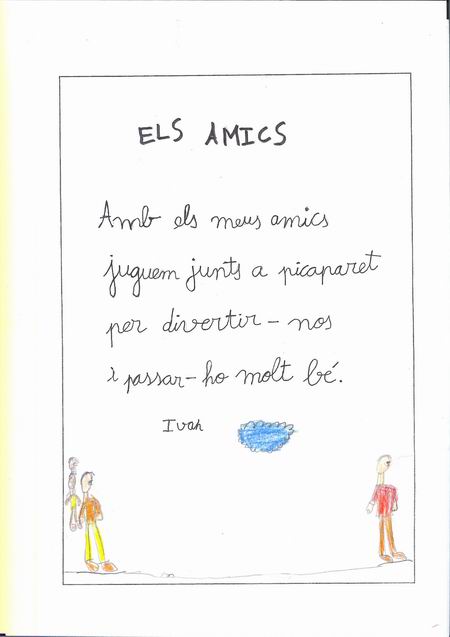 ELS AMICS
Amb els meus amics
juguem junts a picaparet
per divertir-nos
i passar-ho molt bé.
Ivan